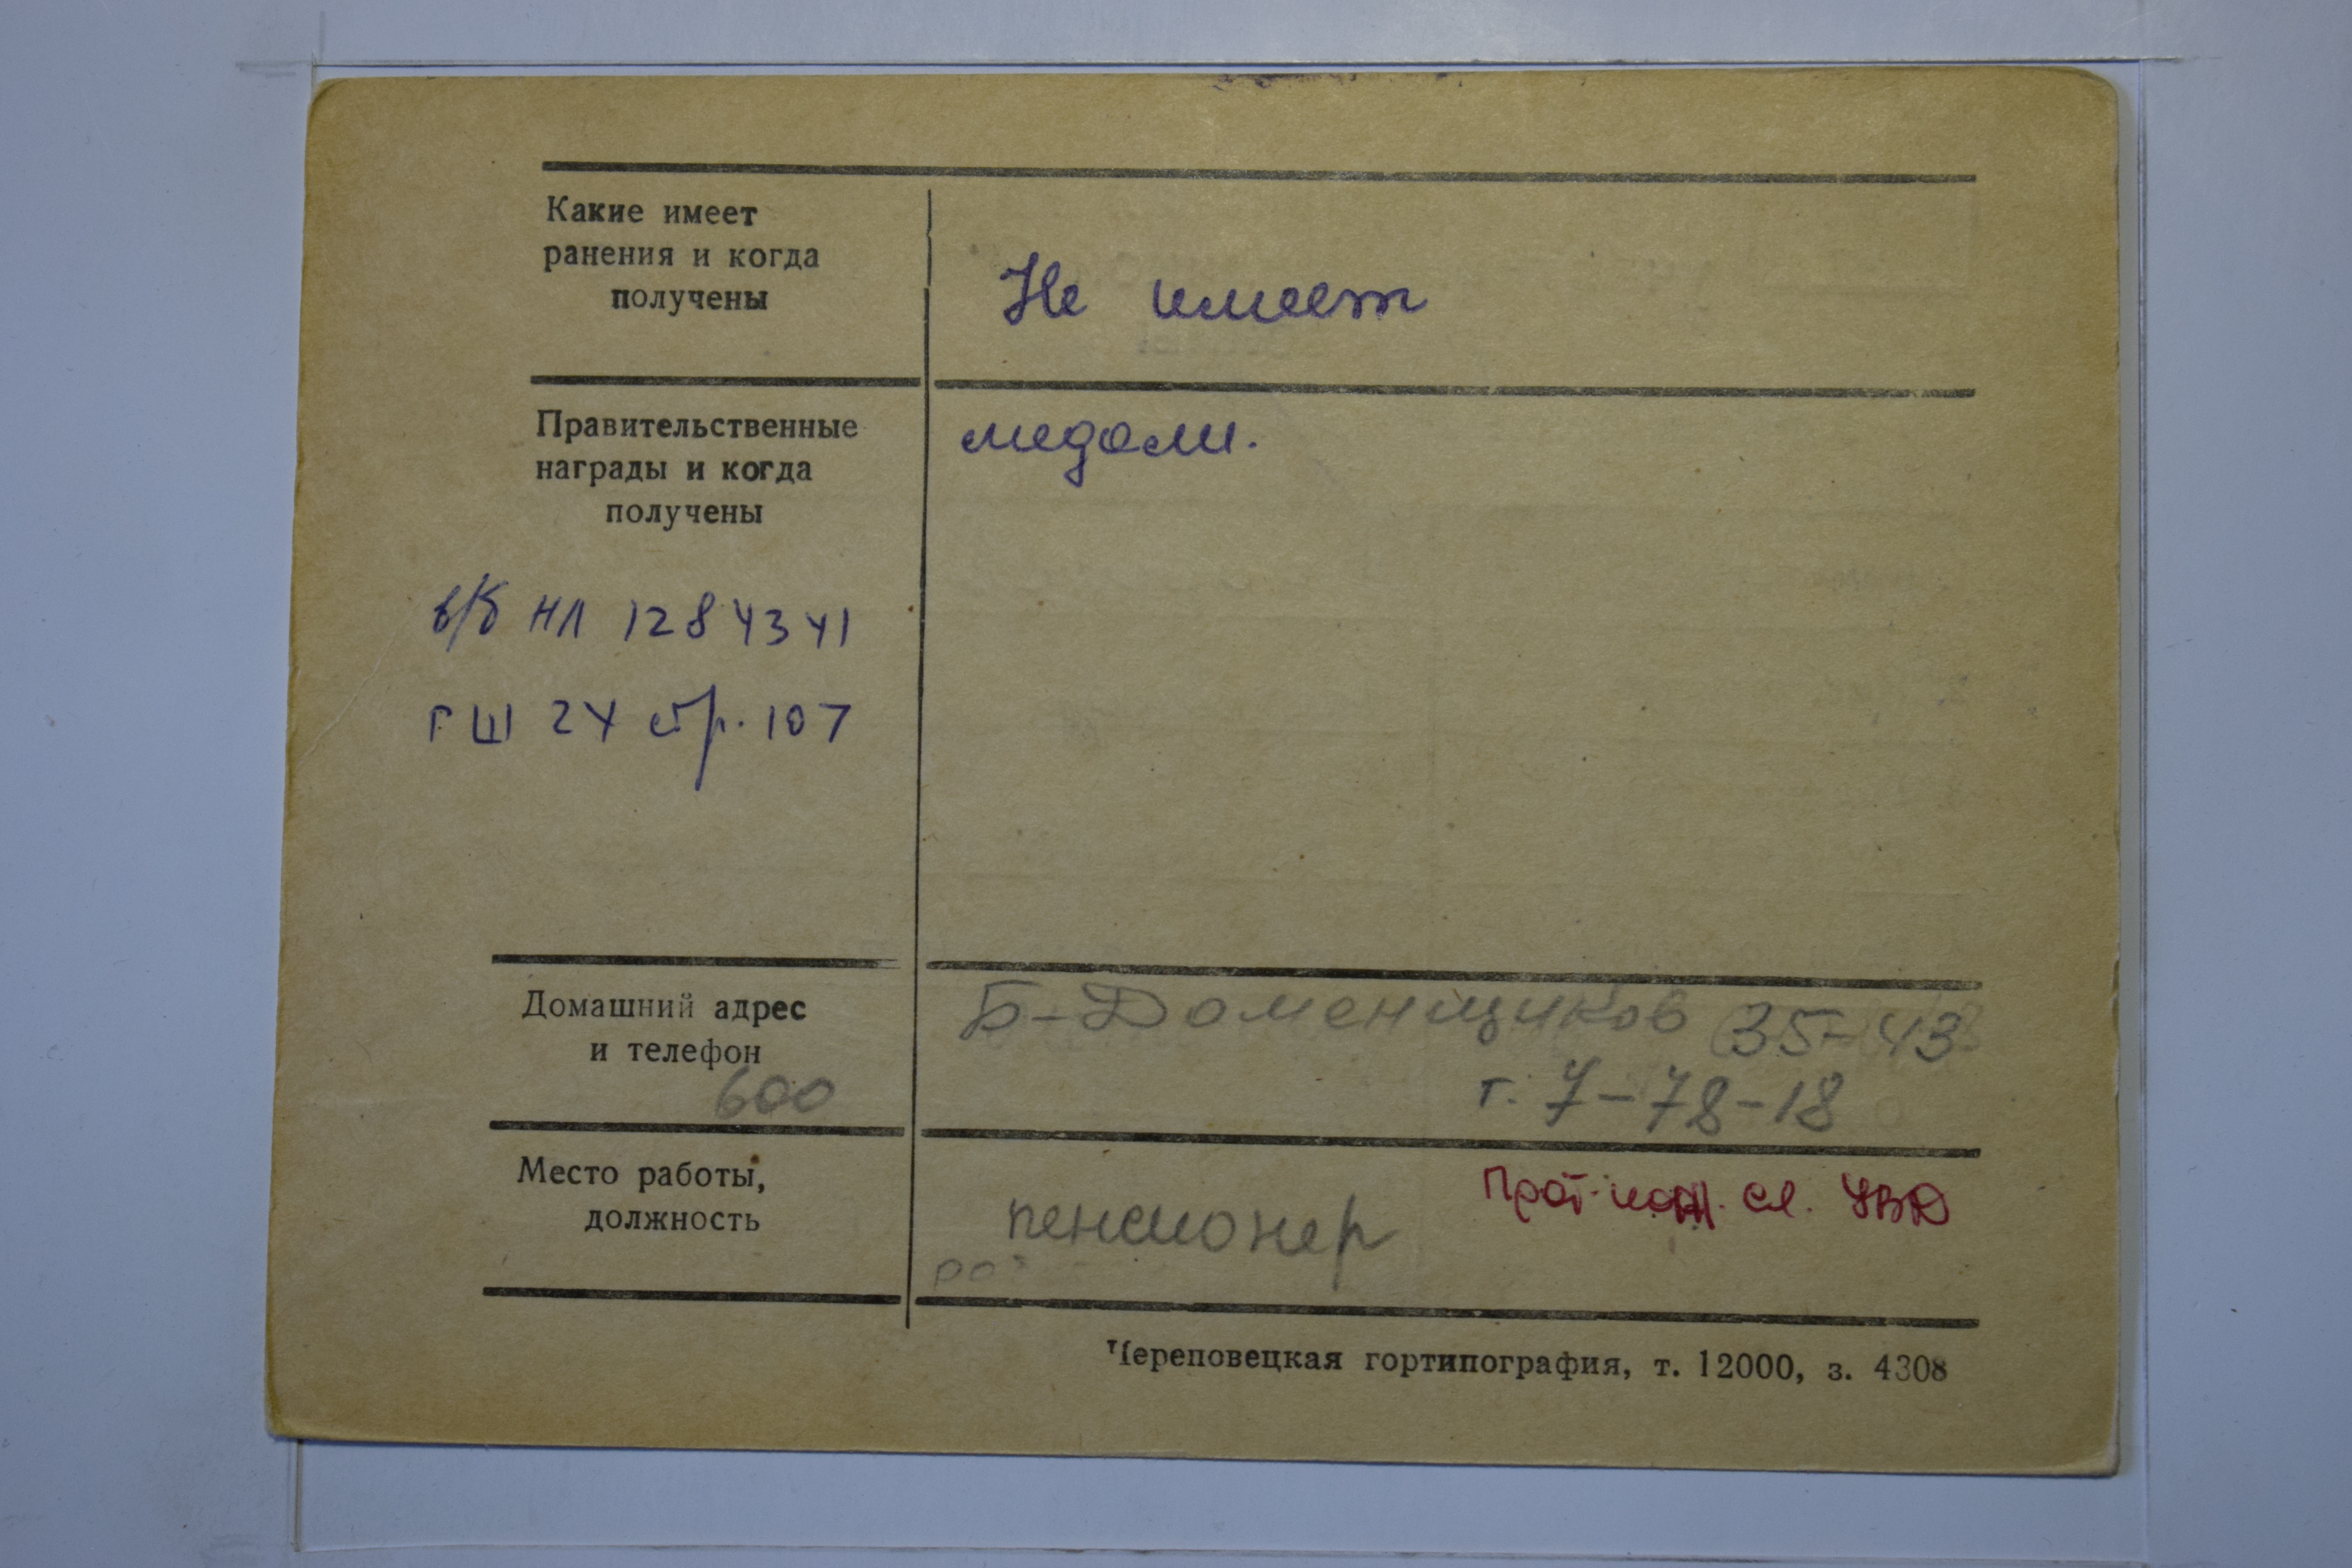 Какие имеет
ранения и когда
получены
Не имеет
Правительственные
награды и когда
получены
медали.
в/б НЛ 1284341
ГШ 24 стр. 107
Домашний адрес
и телефон
600
Б-Доменщиков 35-43
т. 7-78-18
Место работы,
должность
пенсионер
Прот. пож. сл. УВД
Череповецкая гортипография, т. 12000, з. 4308